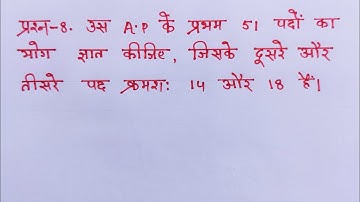 प्रश्न-8. उस A.P के प्रथम 51 पदों का
योग ज्ञात कीजिए, जिसके दूसरे और
तीसरे पद क्रमश: 14 और 18 हैं।